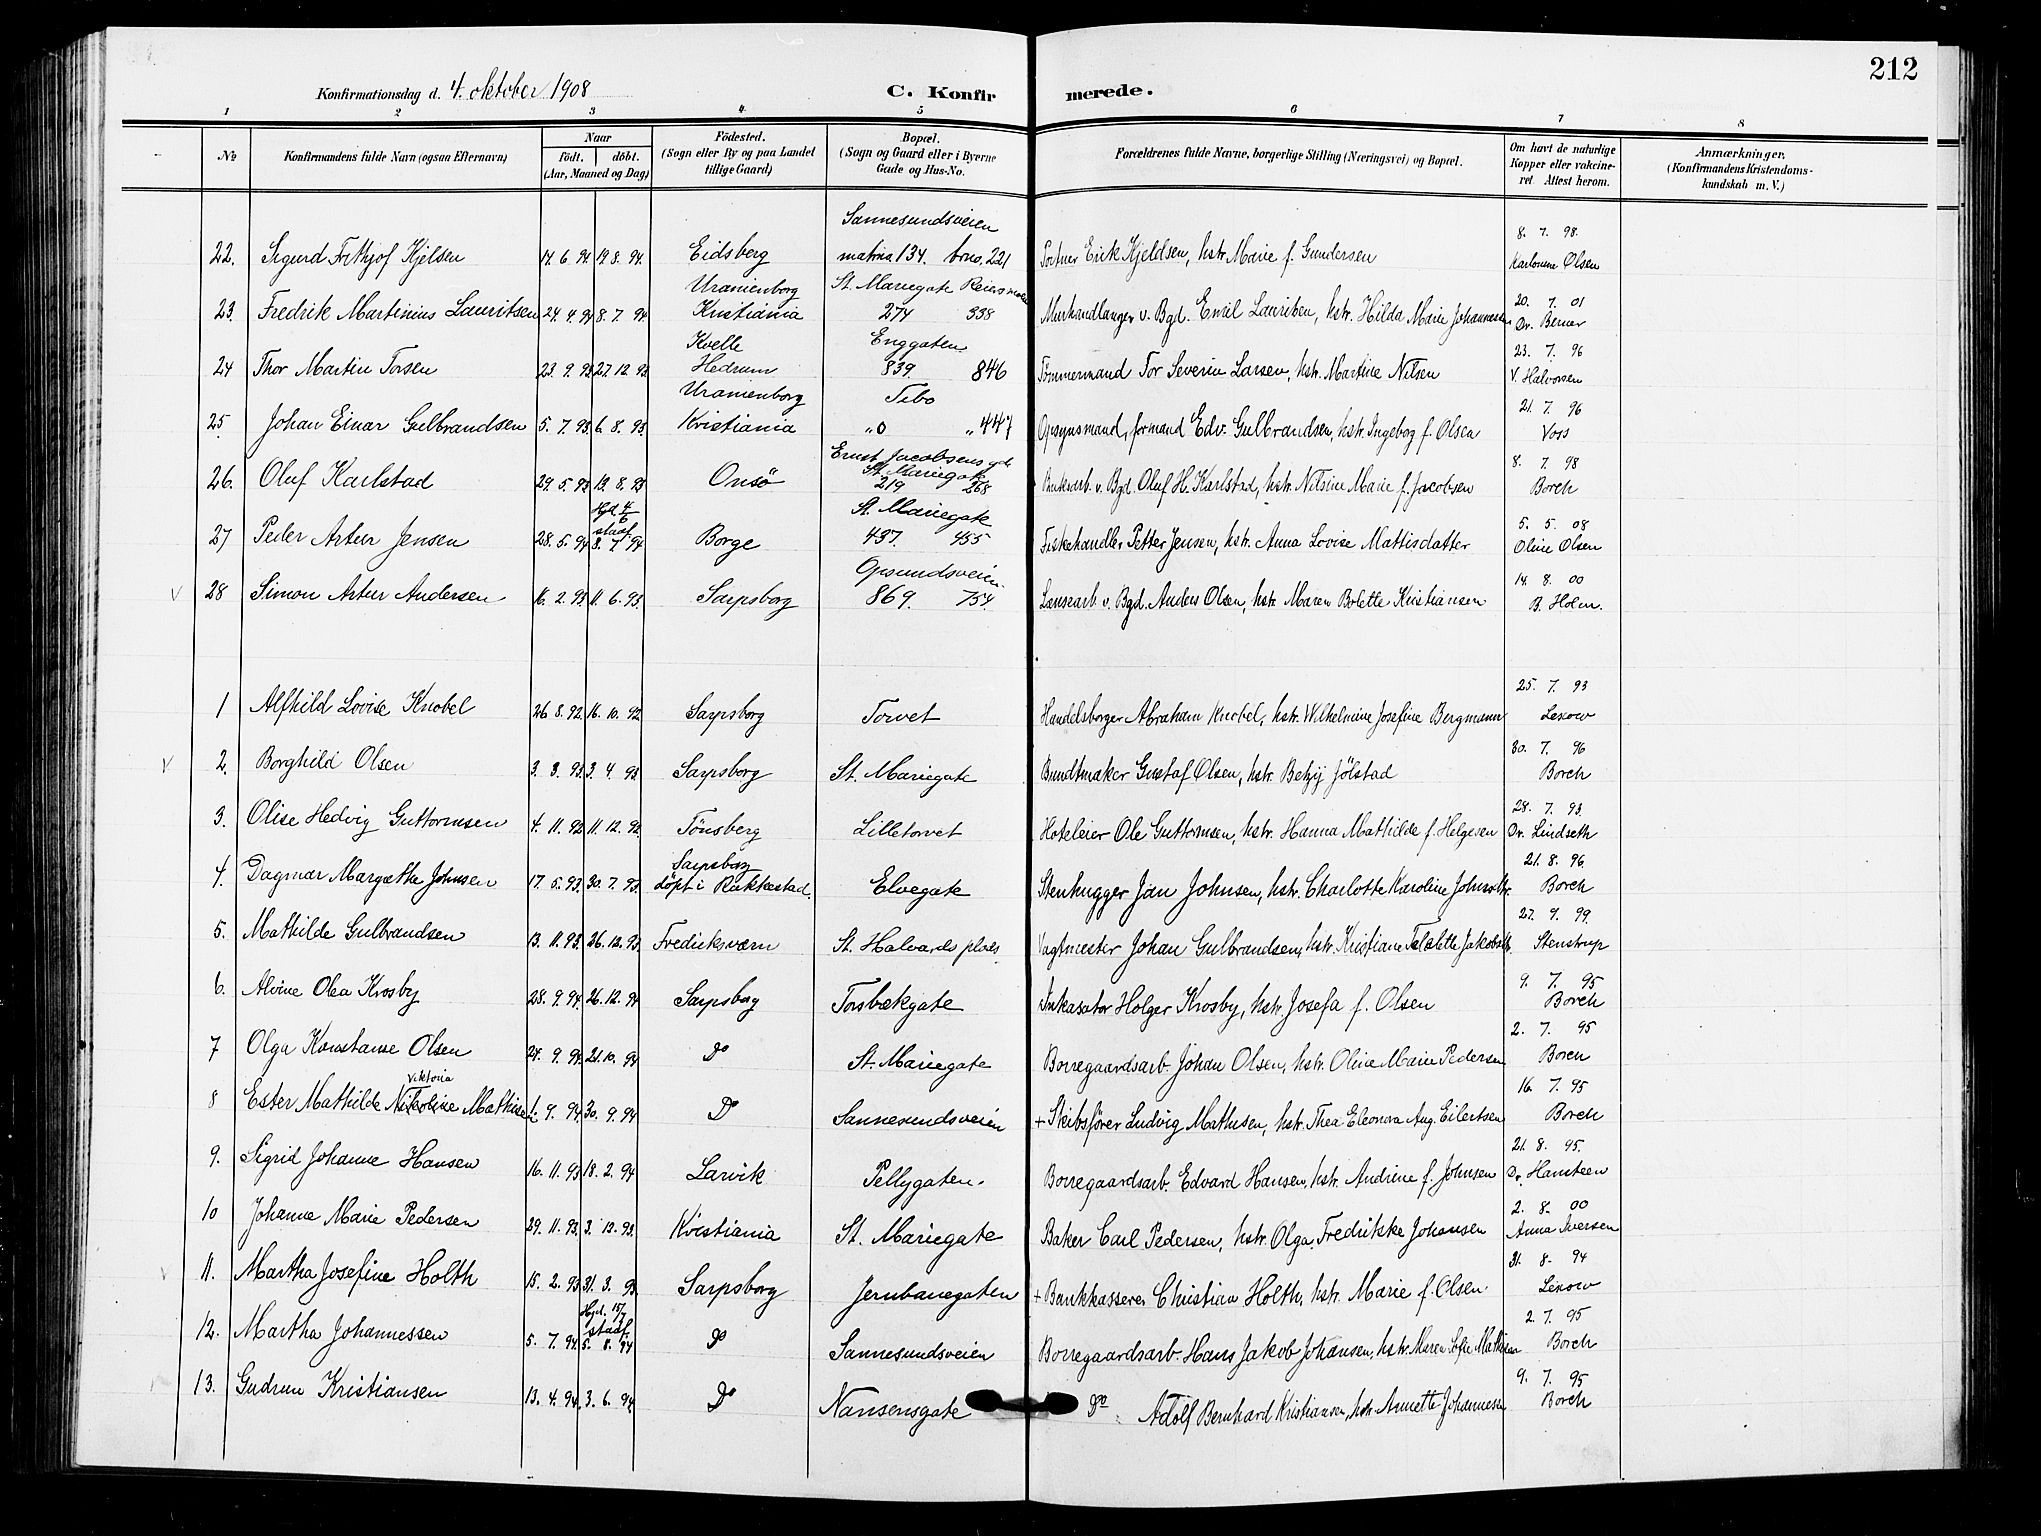 212
Konfirmationsdag d. 4. oktober 1908 C. Konfirmerede.
1 2 3 4 5 6 7 8
No Konfirmandens fulde Navn (ogsaa Efternavn) Naar födt. döbt. (Aar, Maaned og Dag) Födested. (Sogn eller By og paa Landet tillige Gaard) Bopæl. (Sogn og Gaard eller i Byerne Gade og Hus-No. Forældrenes fulde Navne, borgerlige Stilling (Næringsvei) og Bopæl. Om havt de naturlige Kopper eller vakcineret. Attest herom. Anmærkninger. (Konfirmandens Kristendomskundskab m. V.)
Sannesundsveien 8. 7. 98.
22. Sigurd Frithjof Kjelsen 14. 6. 94. 19. 8. 94. Eidsberg matrno 134. brno. 221 Portner Erik Kjeldsen, hstr. Marie f. Gundersen Karlonine Olsen
Uranienborg St. Mariegate 20. 7. 01
23. Fredrik Martinius Lauritsen 24. 4. 94 8. 7. 94 Kristiania 274 338 Murhandlanger v. Bgd. Emil Lauritsen, hstr. Hilda Marie Johannessen Dr. Berner
Kvelle Enggaten 23. 7. 96
24 Thor Martin Torsen 23. 9. 93 27. 12. 93 Hedrum 839 846 Tömmermand Tor Severin Larsen, hstr. Martine Nilsen V. Halvorsen
Uranienborg Tebo 21. 7. 96
25. Johan Einar Gulbrandsen 5. 7. 93. 6. 8. 93. Kristiania „0 „447 Opsynsmand, formand Edv. Gulbrandsen, hstr. Ingeborg f. Olsen Voss
Ernst Jacobsens gde St. Mariegate 8. 7. 98
26. Oluf Karlstad 29. 5. 93 13. 8. 93 Onsö 219 268 Bruksarb. v. Bgd. Oluf H. Karlstad, hstr. Nilsine Marie f. Jacobsen Borch
Hjd. 4/6 stadf. St. Mariegate 5. 5. 08
27 Peder Artur Jensen 28. 5. 94 8. 7 94 Borge 437. 455 Fiskehandler Petter Jensen, hstr. Anna Lovise Mattisdatter Oline Olsen
Opsundsveien. 14. 8. 00
V 28 Simon Artur Andersen 16. 2. 93 11. 6. 93. Sarpsborg 869. 754. Lænsearb. v. Bgd. Anders Olsen, hstr. Maren Bolette Kristiansen B. Holm.
25. 7. 93
1 Alfhild Lovise Knobel 26. 8. 92. 16. 10. 92 Sarpsborg Torvet Handelsborger Abraham Knobel, hstr. Wilhelmine Josefine Bergmann Lexow
30. 7. 96
V 2. Borghild Olsen 3. 3. 93. 3. 4. 93 Sarpsborg St. Mariegate Bundtmaker Gustaf Olsen, hstr. Betzy Jölstad Borch
28. 7. 93.
3. Olise Hedvig Guttormsen 4. 11. 92 11. 12. 92. Tönsberg Lilletorvet Hoteleier Ole Guttormsen, hstr. Hanna Mathilde f. Helgesen Dr. Lindseth
Sarpsborg 21. 8. 96.
4. Dagmar Margethe Johnsen 17. 5. 93. 30. 7. 93. döpt i Rakkestad. Elvegate Stenhugger Jan Johnsen, hstr. Charlotte Karoline Johnsdtr. Borch
27. 9. 99.
5. Mathilde Gulbrandsen 13. 11. 93. 26. 12. 93. Fredriksværn St. Halvards plads Vagtmester Johan Gulbrandsen, hstr. Kristiane Jakobsdtr. Stenstrup
9. 7. 95
6. Alvine Olea Krosby 28. 9. 94. 26. 12. 94 Sarpsborg Torsbækgate Inkasator Holger Krosby, hstr. Josefa f. Olsen Borch
2. 7. 95
7 Olga Konstanse Olsen 24. 9. 94. 21. 10. 94 Do St. Mariegate Borregaardsarb. Johan Olsen, hstr. Oline Marie Pedersen Borch
Viktoria 16. 7. 95
8 Ester Mathilde Nikoline Mathisen 1. 9. 94 30. 9. 94 Do Sannesundsveien + Skibsförer Ludvig Mathisen, hstr. Thea Eleonora Aug. Eilertsen Borch
21. 8. 95.
9. Sigrid Johanne Hansen 16. 11. 93 18. 2. 94 Larvik Pellygaten. Borregaardsarb. Edvard Hansen, hstr. Andrine f. Johnsen Dr. Hansteen
2. 8. 00
10 Johanne Marie Pedersen 29. 11. 93 3. 12. 93. Kristiania St. Mariegate Baker Carl Pedersen, hstr. Olga Fredrikke Johansen Anna Iversen
31. 8. 94
11. Martha Josefine Holth 15. 2. 93 31. 3. 93. Sarpsborg Jernbanegaten + Bankkasserer Christian Holth, hstr. Marie f. Olsen Lexow
Hjd. 15/7 stadf. 2. 7. 95
12. Martha Johannessen 5. 7. 94. 5. 8. 94 Do Sannesundsveien Borregaardsarb. Hans Jakob Johansen, hstr. Maren Sofie Mathisen Borch
9. 7. 95
13. Gudrun Kristiansen 13. 4. 94. 3. 6. 94 Do Nansensgate Do Adolf Bernhard Kristiansen, hstr. Annette Johannessen Borch